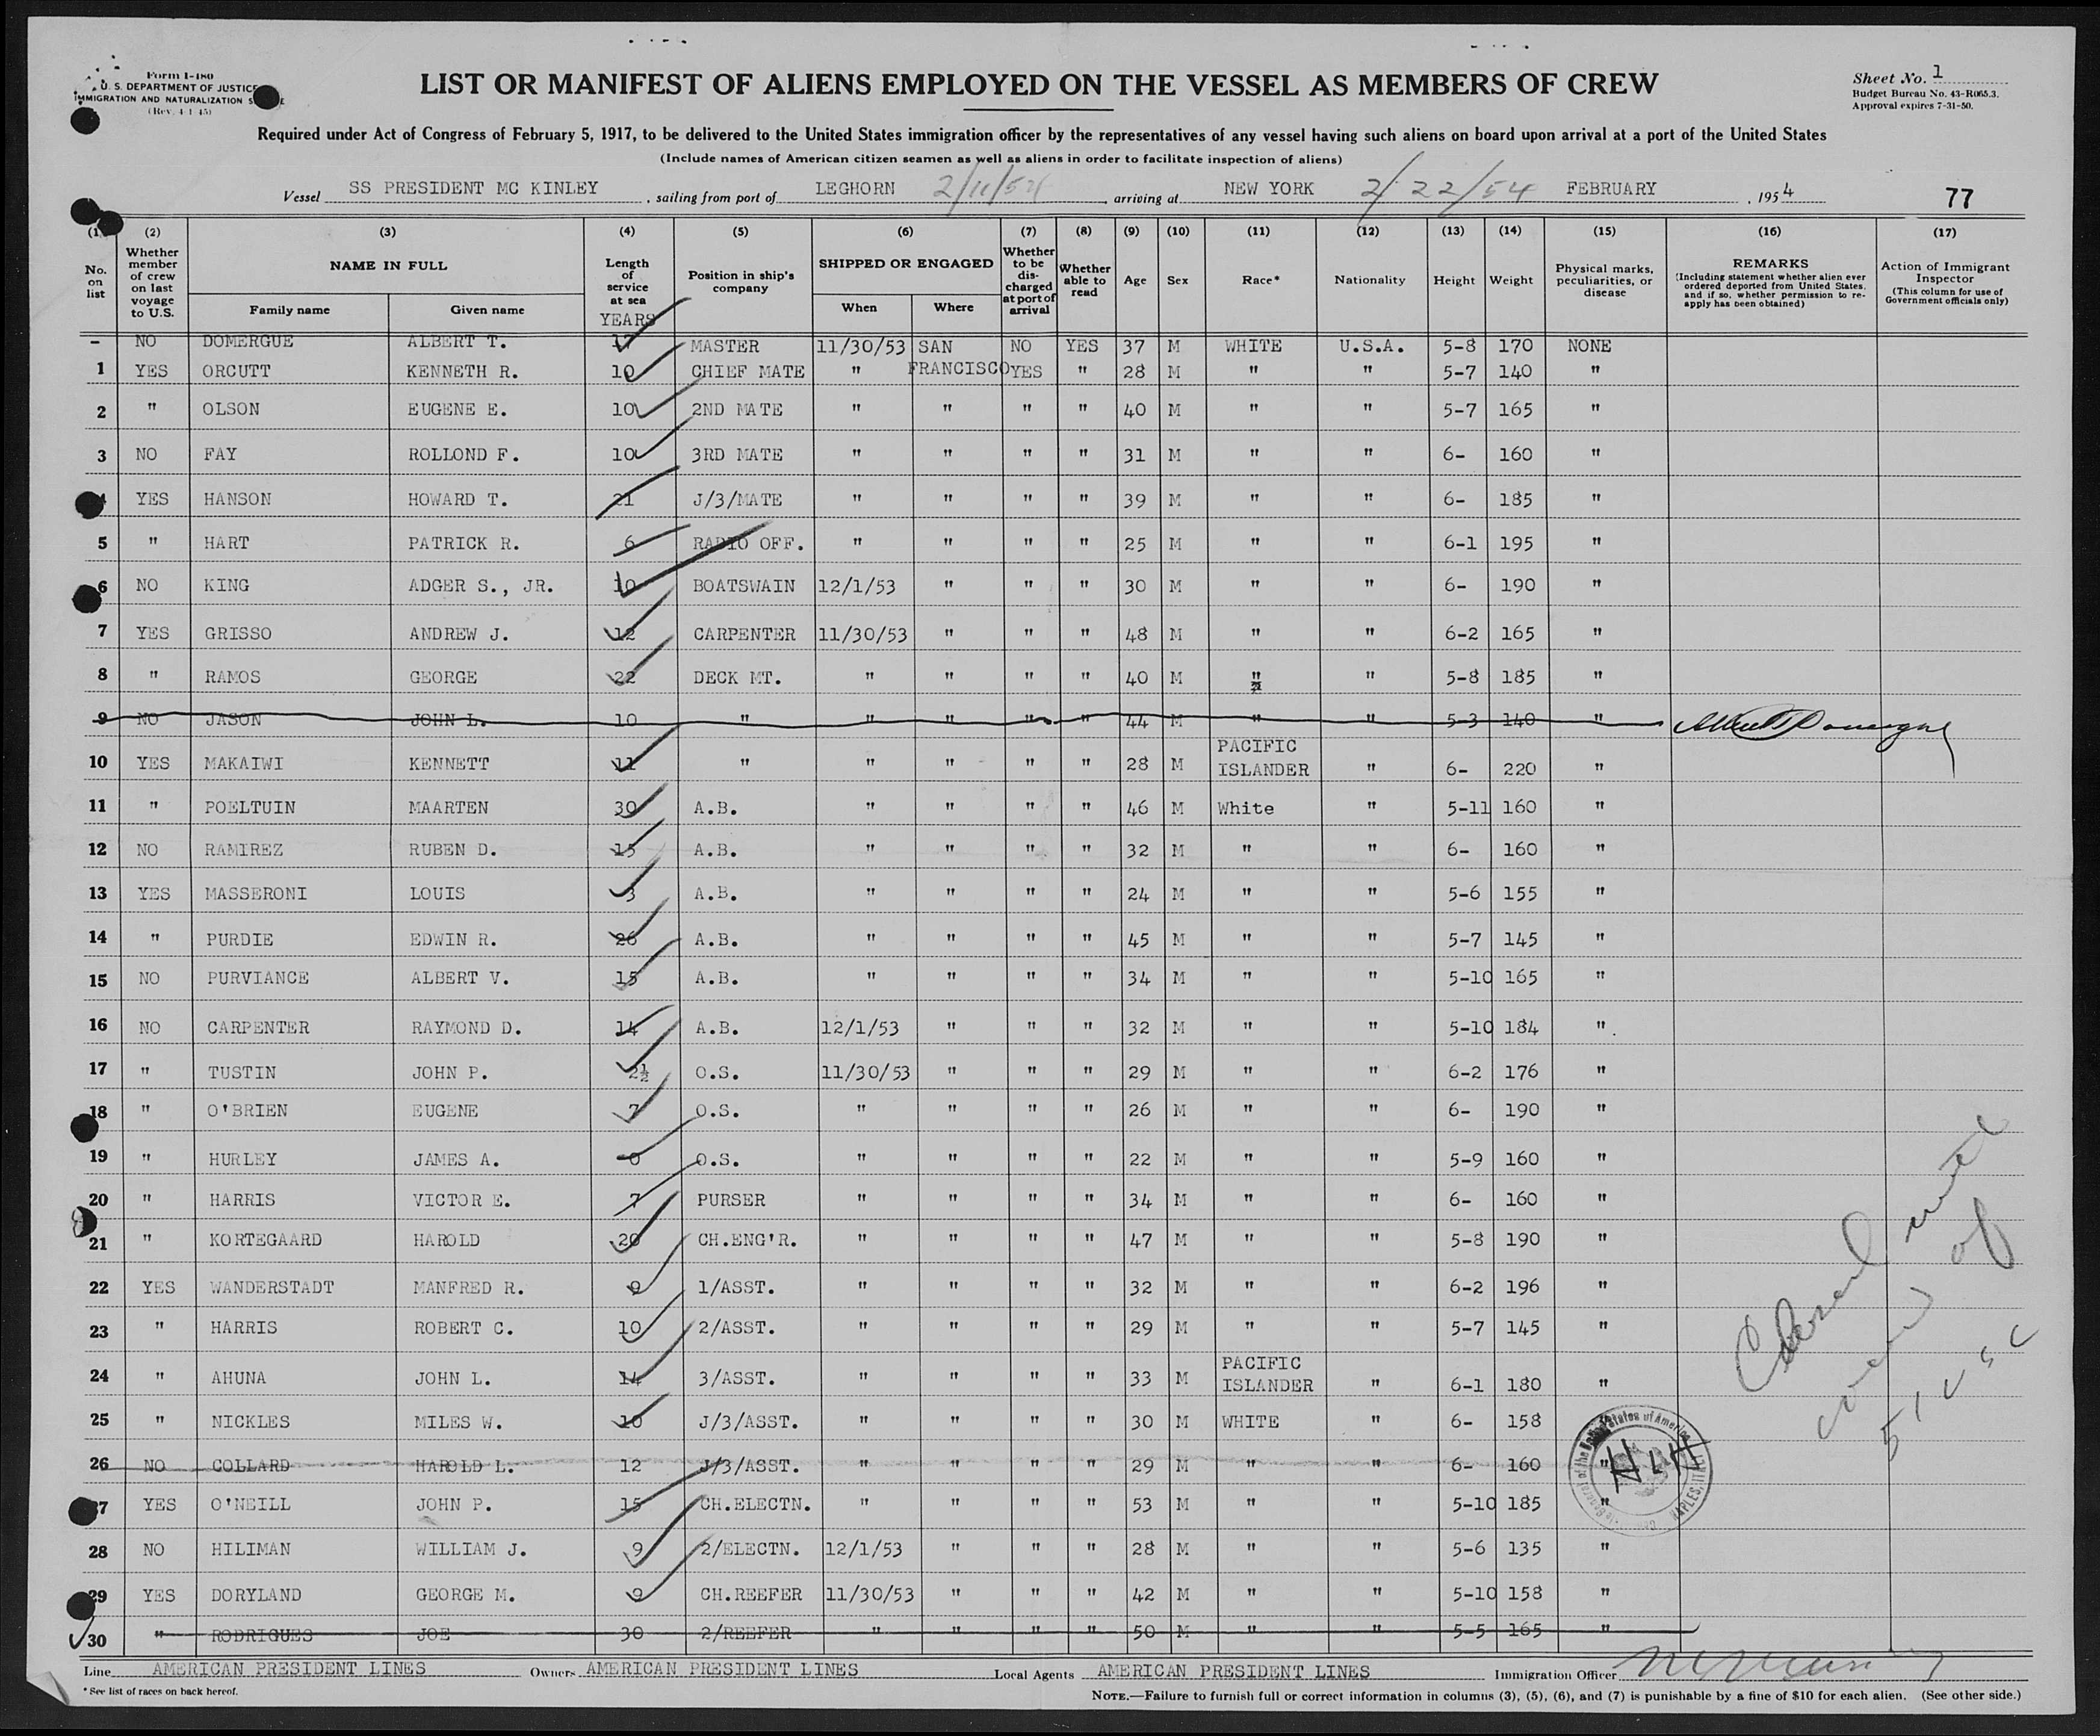 Form I-480
U. S. DEPARTMENT OF JUSTICE
IMMIGRATION AND NATURALIZATION
(Rev. 4-1-45)
LIST OR MANIFEST OF ALIENS EMPLOYED ON THE VESSEL AS MEMBERS OF CREW
Sheet No. 1
Budget Bureau No. 43-R065.3.
Approval expires 7-31-50.
Required under Act of Congress of February 5, 1917, to be delivered to the United States immigration officer by the representatives of any vessel having such aliens on board upon arrival at a port of the United States
(Include names of American citizen seamen as well as aliens in order to facilitate inspection of aliens)
Vessel SS PRESIDENT MC KINLEY, sailing from port of LEGHORN 2/11/54, arriving at NEW YORK 2/22/54 FEBRUARY, 1954
77
(1) (2) (3) (4) (5) (6) (7) (8) (9) (10) (11) (12) (13) (14) (15) (16) (17)
No. on list
Whether member of crew on last voyage to U.S.
NAME IN FULL
Family name
Given name
Length of service at sea
YEARS
Position in ship's company
SHIPPED OR ENGAGED
When
Where
Whether to be discharged at port of arrival
Whether able to read
Age
Sex
Race*
Nationality
Height
Weight
Physical marks, peculiarities, or disease
REMARKS
(Including statement whether alien ever ordered deported from United States, and if so, whether permission to reapply has been obtained)
Action of Immigrant Inspector
(This column for use of Government officials only)
– NO DOMERGUE ALBERT T. 17 MASTER 11/30/53 SAN NO YES 37 M WHITE U.S.A. 5-8 170 NONE
1 YES ORCUTT KENNETH R. 10 CHIEF MATE " FRANCISCO YES " 28 M " " 5-7 140 "
2 " OLSON EUGENE E. 10 2ND MATE " " " " 40 M " " 5-7 165 "
3 NO FAY ROLLOND F. 10 3RD MATE " " " " 31 M " " 6- 160 "
4 YES HANSON HOWARD T. 21 J/3/MATE " " " " 39 M " " 6- 185 "
5 " HART PATRICK R. 6 RADIO OFF. " " " " 25 M " " 6-1 195 "
6 NO KING ADGER S., JR. 10 BOATSWAIN 12/1/53 " " " 30 M " " 6- 190 "
7 YES GRISSO ANDREW J. 12 CARPENTER 11/30/53 " " " 48 M " " 6-2 165 "
8 " RAMOS GEORGE 22 DECK MT. " " " " 40 M " " 5-8 185 "
9 NO JASON JOHN L. 10 " " " " " 44 M " " 5-3 140 " Albert T Domergue
10 YES MAKAIWI KENNETT 11 " " " " " 28 M PACIFIC ISLANDER " 6- 220 "
11 " POELTUIN MAARTEN 30 A.B. " " " " 46 M White " 5-11 160 "
12 NO RAMIREZ RUBEN D. 15 A.B. " " " " 32 M " " 6- 160 "
13 YES MASSERONI LOUIS 3 A.B. " " " " 24 M " " 5-6 155 "
14 " PURDIE EDWIN R. 26 A.B. " " " " 45 M " " 5-7 145 "
15 NO PURVIANCE ALBERT V. 15 A.B. " " " " 34 M " " 5-10 165 "
16 NO CARPENTER RAYMOND D. 14 A.B. 12/1/53 " " " 32 M " " 5-10 184 "
17 " TUSTIN JOHN P. 2½ O.S. 11/30/53 " " " 29 M " " 6-2 176 "
18 " O'BRIEN EUGENE 7 O.S. " " " " 26 M " " 6- 190 "
19 " HURLEY JAMES A. 0 O.S. " " " " 22 M " " 5-9 160 "
20 " HARRIS VICTOR E. 7 PURSER " " " " 34 M " " 6- 160 "
21 " KORTEGAARD HAROLD 20 CH.ENG'R. " " " " 47 M " " 5-8 190 "
22 YES WANDERSTADT MANFRED R. 9 1/ASST. " " " " 32 M " " 6-2 196 "
23 " HARRIS ROBERT C. 10 2/ASST. " " " " 29 M " " 5-7 145 "
24 " AHUNA JOHN L. 14 3/ASST. " " " " 33 M PACIFIC ISLANDER " 6-1 180 "
25 " NICKLES MILES W. 10 J/3/ASST. " " " " 30 M WHITE " 6- 158
26 NO COLLARD HAROLD L. 12 J/3/ASST. " " " " 29 M " " 6- 160 "
27 YES O'NEILL JOHN P. 15 CH.ELECTN. " " " " 53 M " " 5-10 185 "
28 NO HILIMAN WILLIAM J. 9 2/ELECTN. 12/1/53 " " " 28 M " " 5-6 135 "
29 YES DORYLAND GEORGE M. 9 CH.REEFER 11/30/53 " " " 42 M " " 5-10 158 "
30 " RODRIGUES JOE 30 2/REEFER " " " " 50 M " " 5-5 165 "
51 USC
Line AMERICAN PRESIDENT LINES Owners AMERICAN PRESIDENT LINES Local Agents AMERICAN PRESIDENT LINES Immigration Officer
* See list of races on back hereof.
NOTE.—Failure to furnish full or correct information in columns (3), (5), (6), and (7) is punishable by a fine of $10 for each alien. (See other side.)